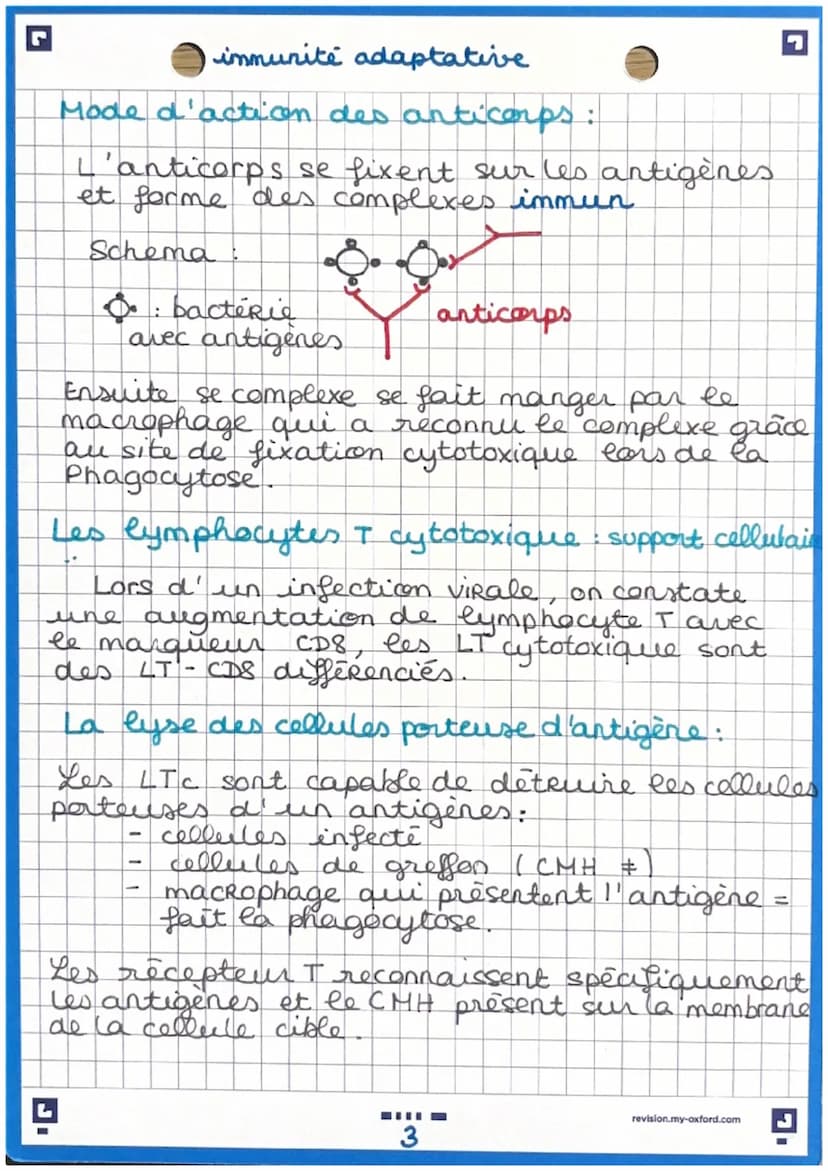 immunité adaptative
Mode d'action des anticorps :
L'anticorps se fixent sur les antigènes
et forme des complexes immun
Schema :
: bactérie
avec antigènes
anticorps
Ensuite se complexe se fait manger par le
macrophage qui a reconnu le complexe grâce
au site de fixation cytotoxique lors de la
Phagocytose.
Les lymphocytes T cytotoxique : support cellulair
:
Lors d'un infection virale, on constate
une augmentation de lymphocyte T avec
le marqueur CD8, les LT cytotoxique sont
des LT - CD8 différenciés.
La lyse des cellules porteuse d'antigène :
Les LTc sont capable de détruire les cellules
porteuses d'un antigènes :
- cellules infecté
- cellules de greffon ( CMH ≠ )
- macrophage qui présentent l'antigène =
fait la phagocytose.
Les récepteur T reconnaissent spécifiquement
les antigènes et le CMH présent sur la membrane
de la cellule cible.
revision.my-oxford.com
3